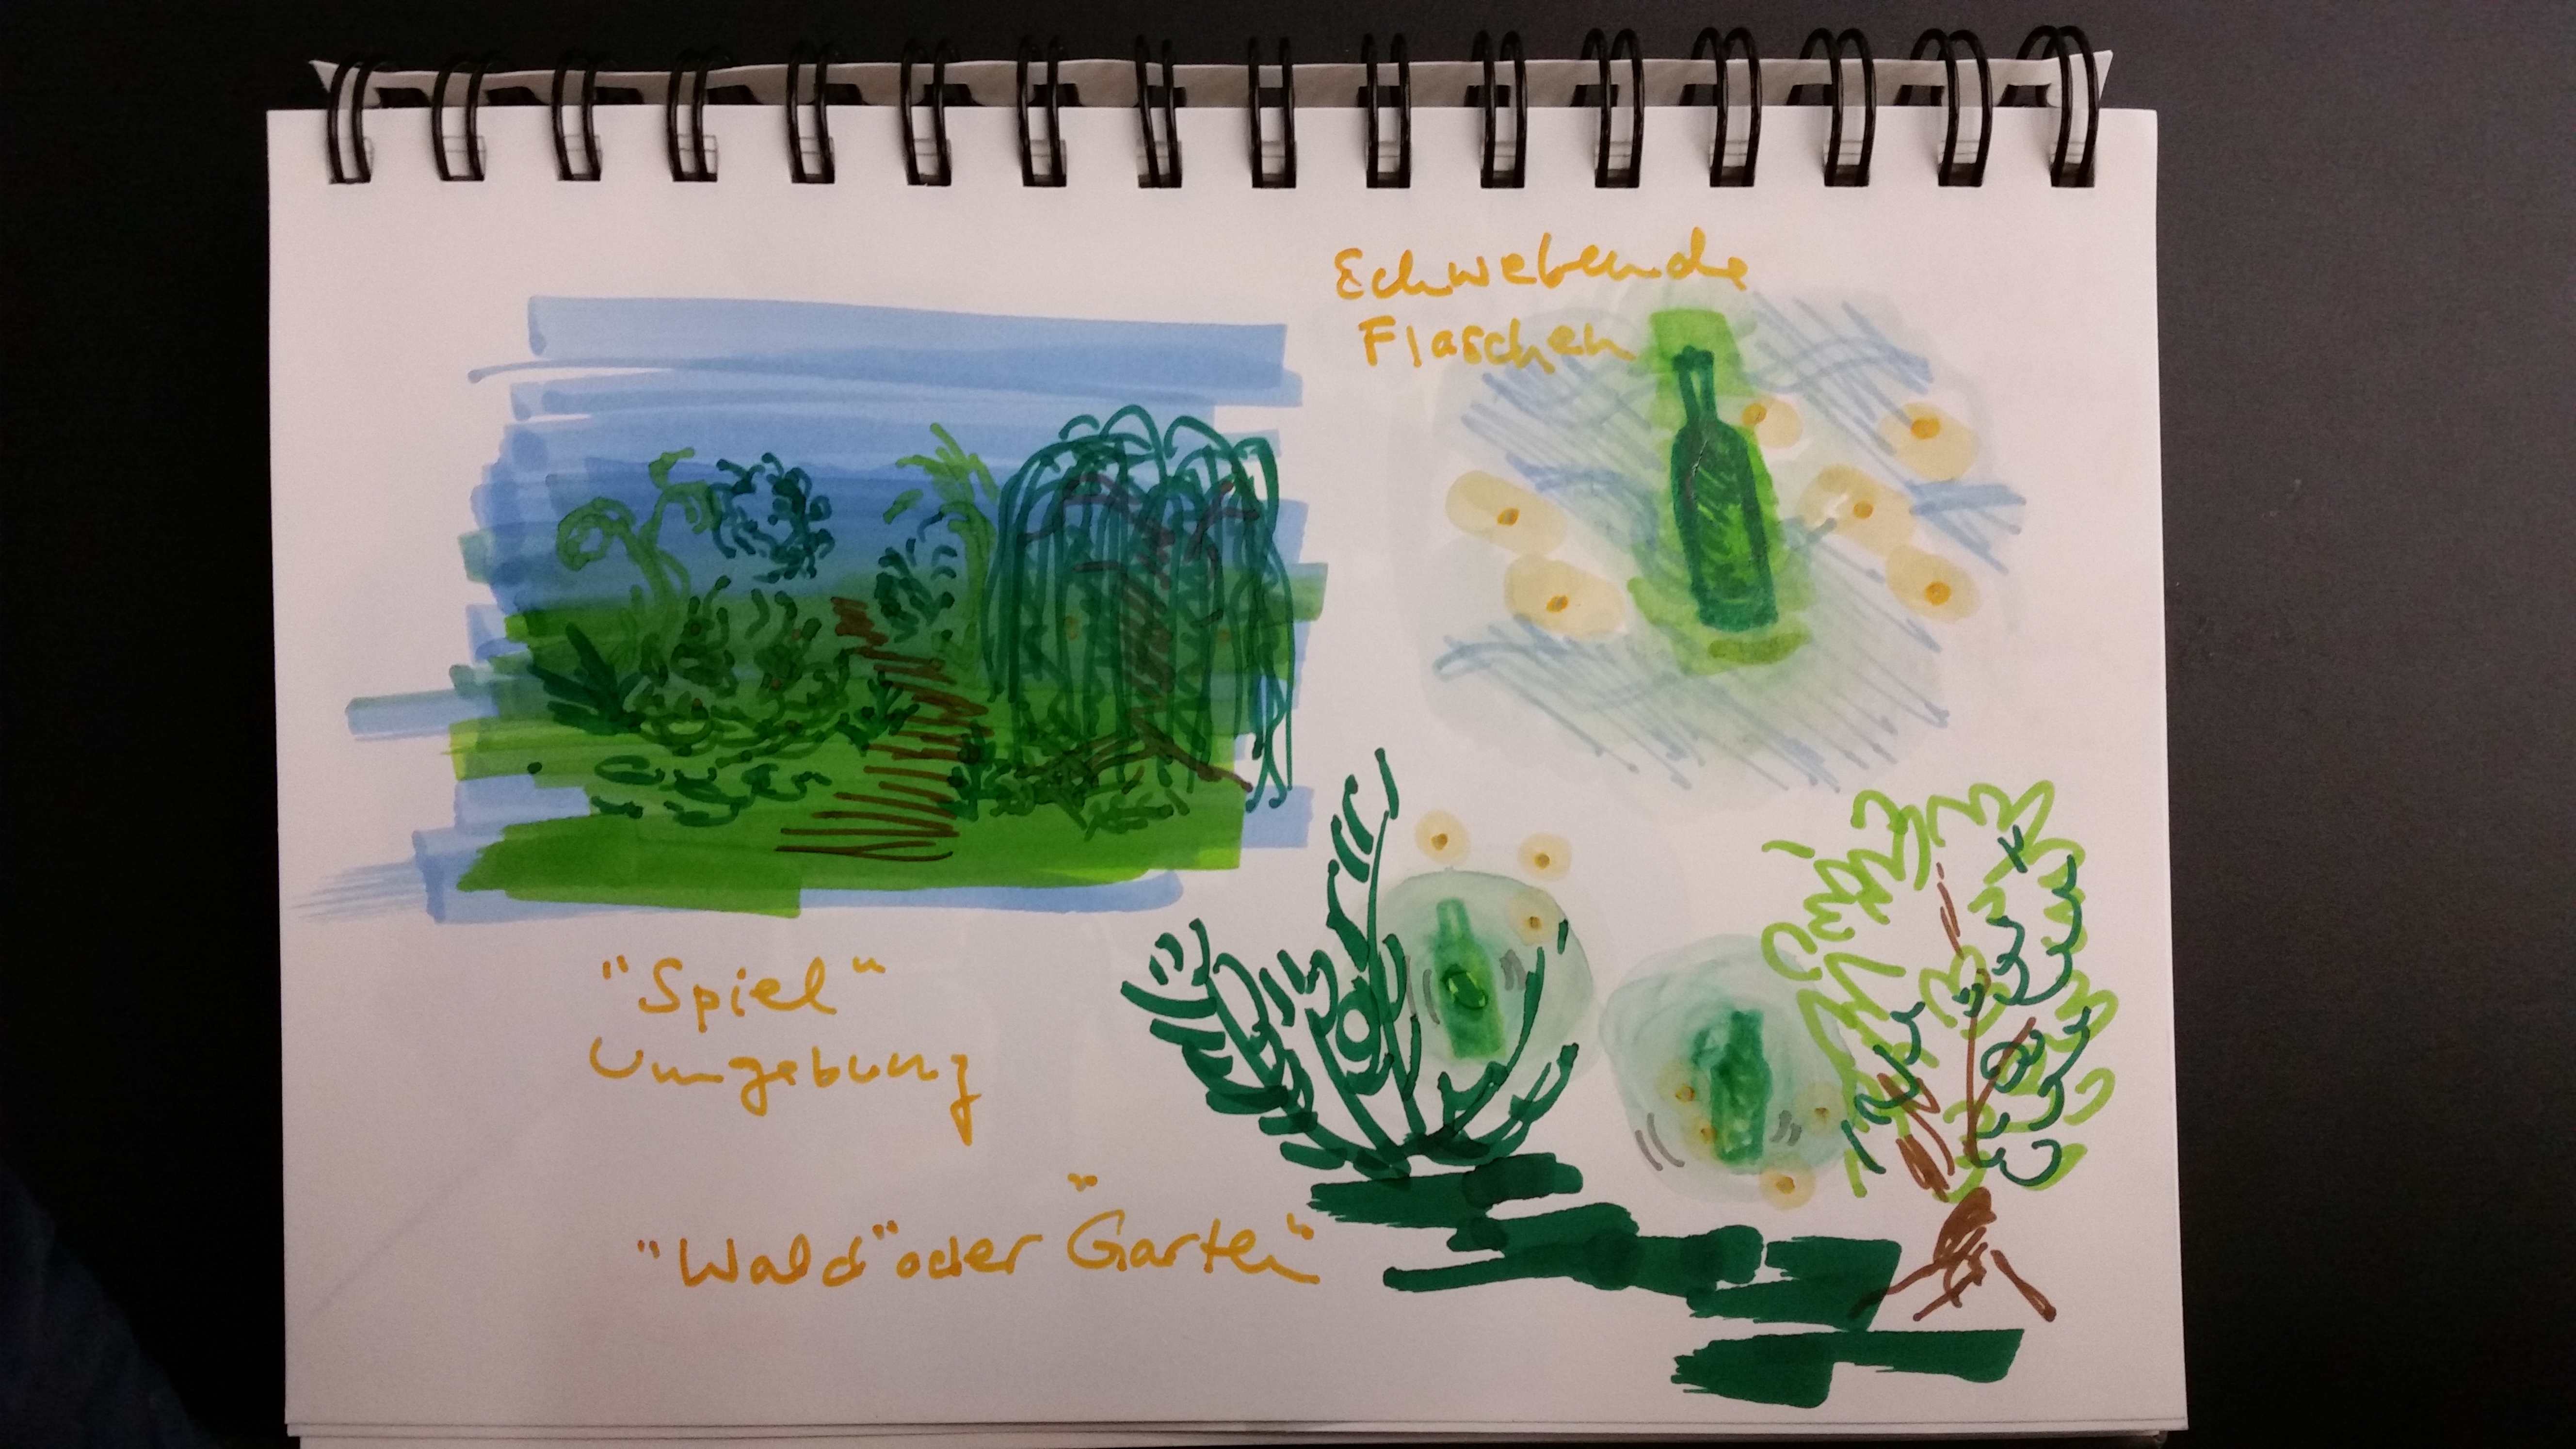 Schwebende
Flaschen
"Spiel"
Umgebung
"Wald" oder "Garten"